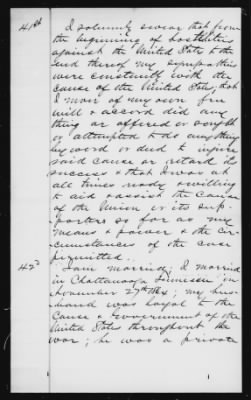 41st I solemnly swear that from
the beginning of hostilities
against the United States to the
end thereof my sympathies
were constantly with the
cause of the United States, that
I never of my own free
will & accord did any
thing or offered or sought
or attempted to do anything
by word or deed to injure
said cause or retard its
success & that I was at
all times ready & willing
to aid & assist the cause
of the Union or its sup-
porters so far as my
means & power & the cir-
cumstances of the case
permitted.
42d I am married, I married
in Chattanooga Tennessee in
November 27th; my hus-
band was loyal to the
cause & Government of the
United States throughout the
war; he was a private